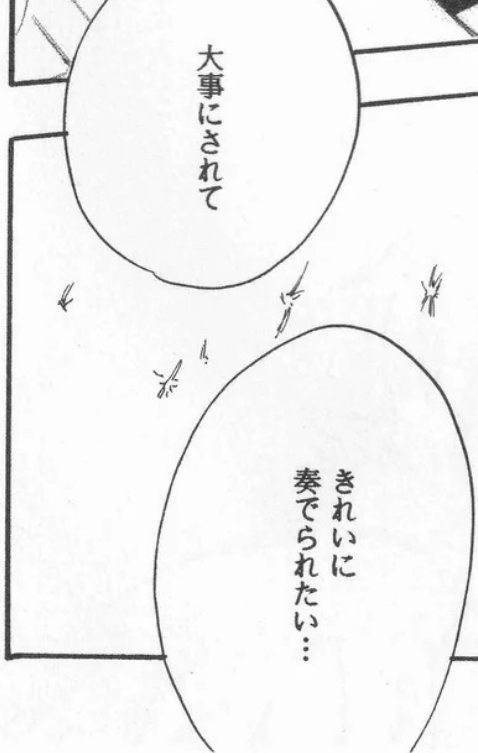 大事にされて
きれいに
奏でられたい…